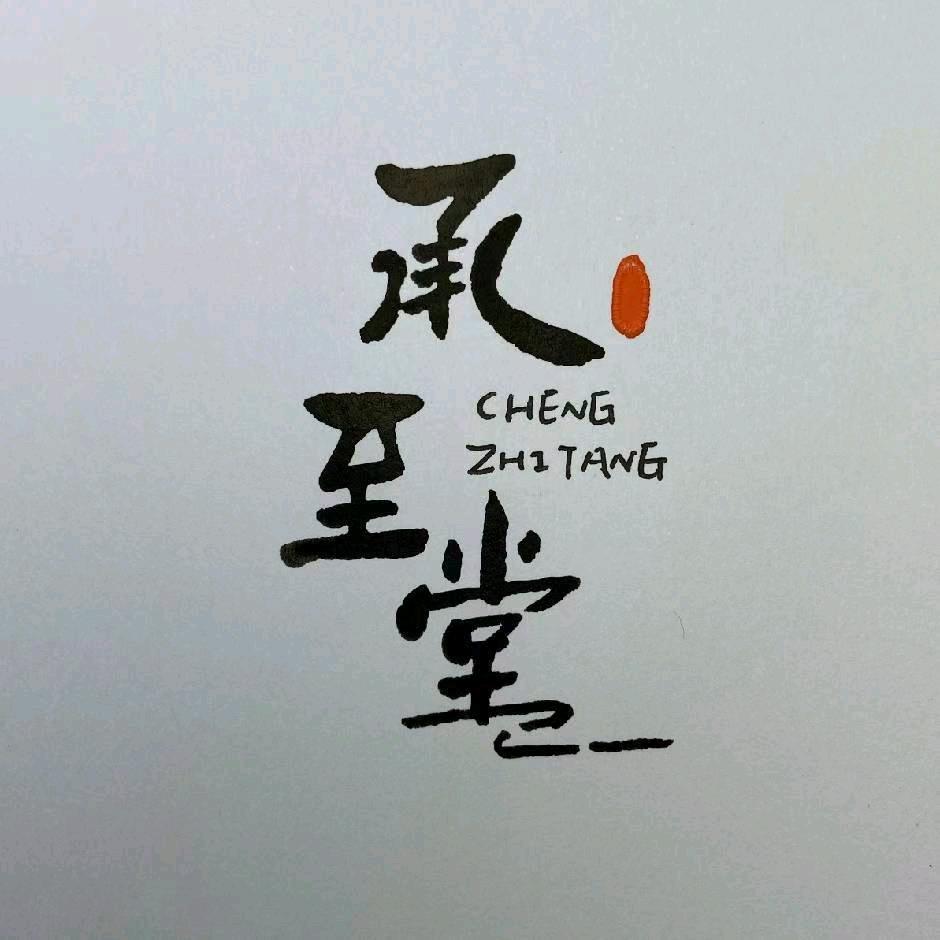 承
至
CHENG
ZHITANG
堂